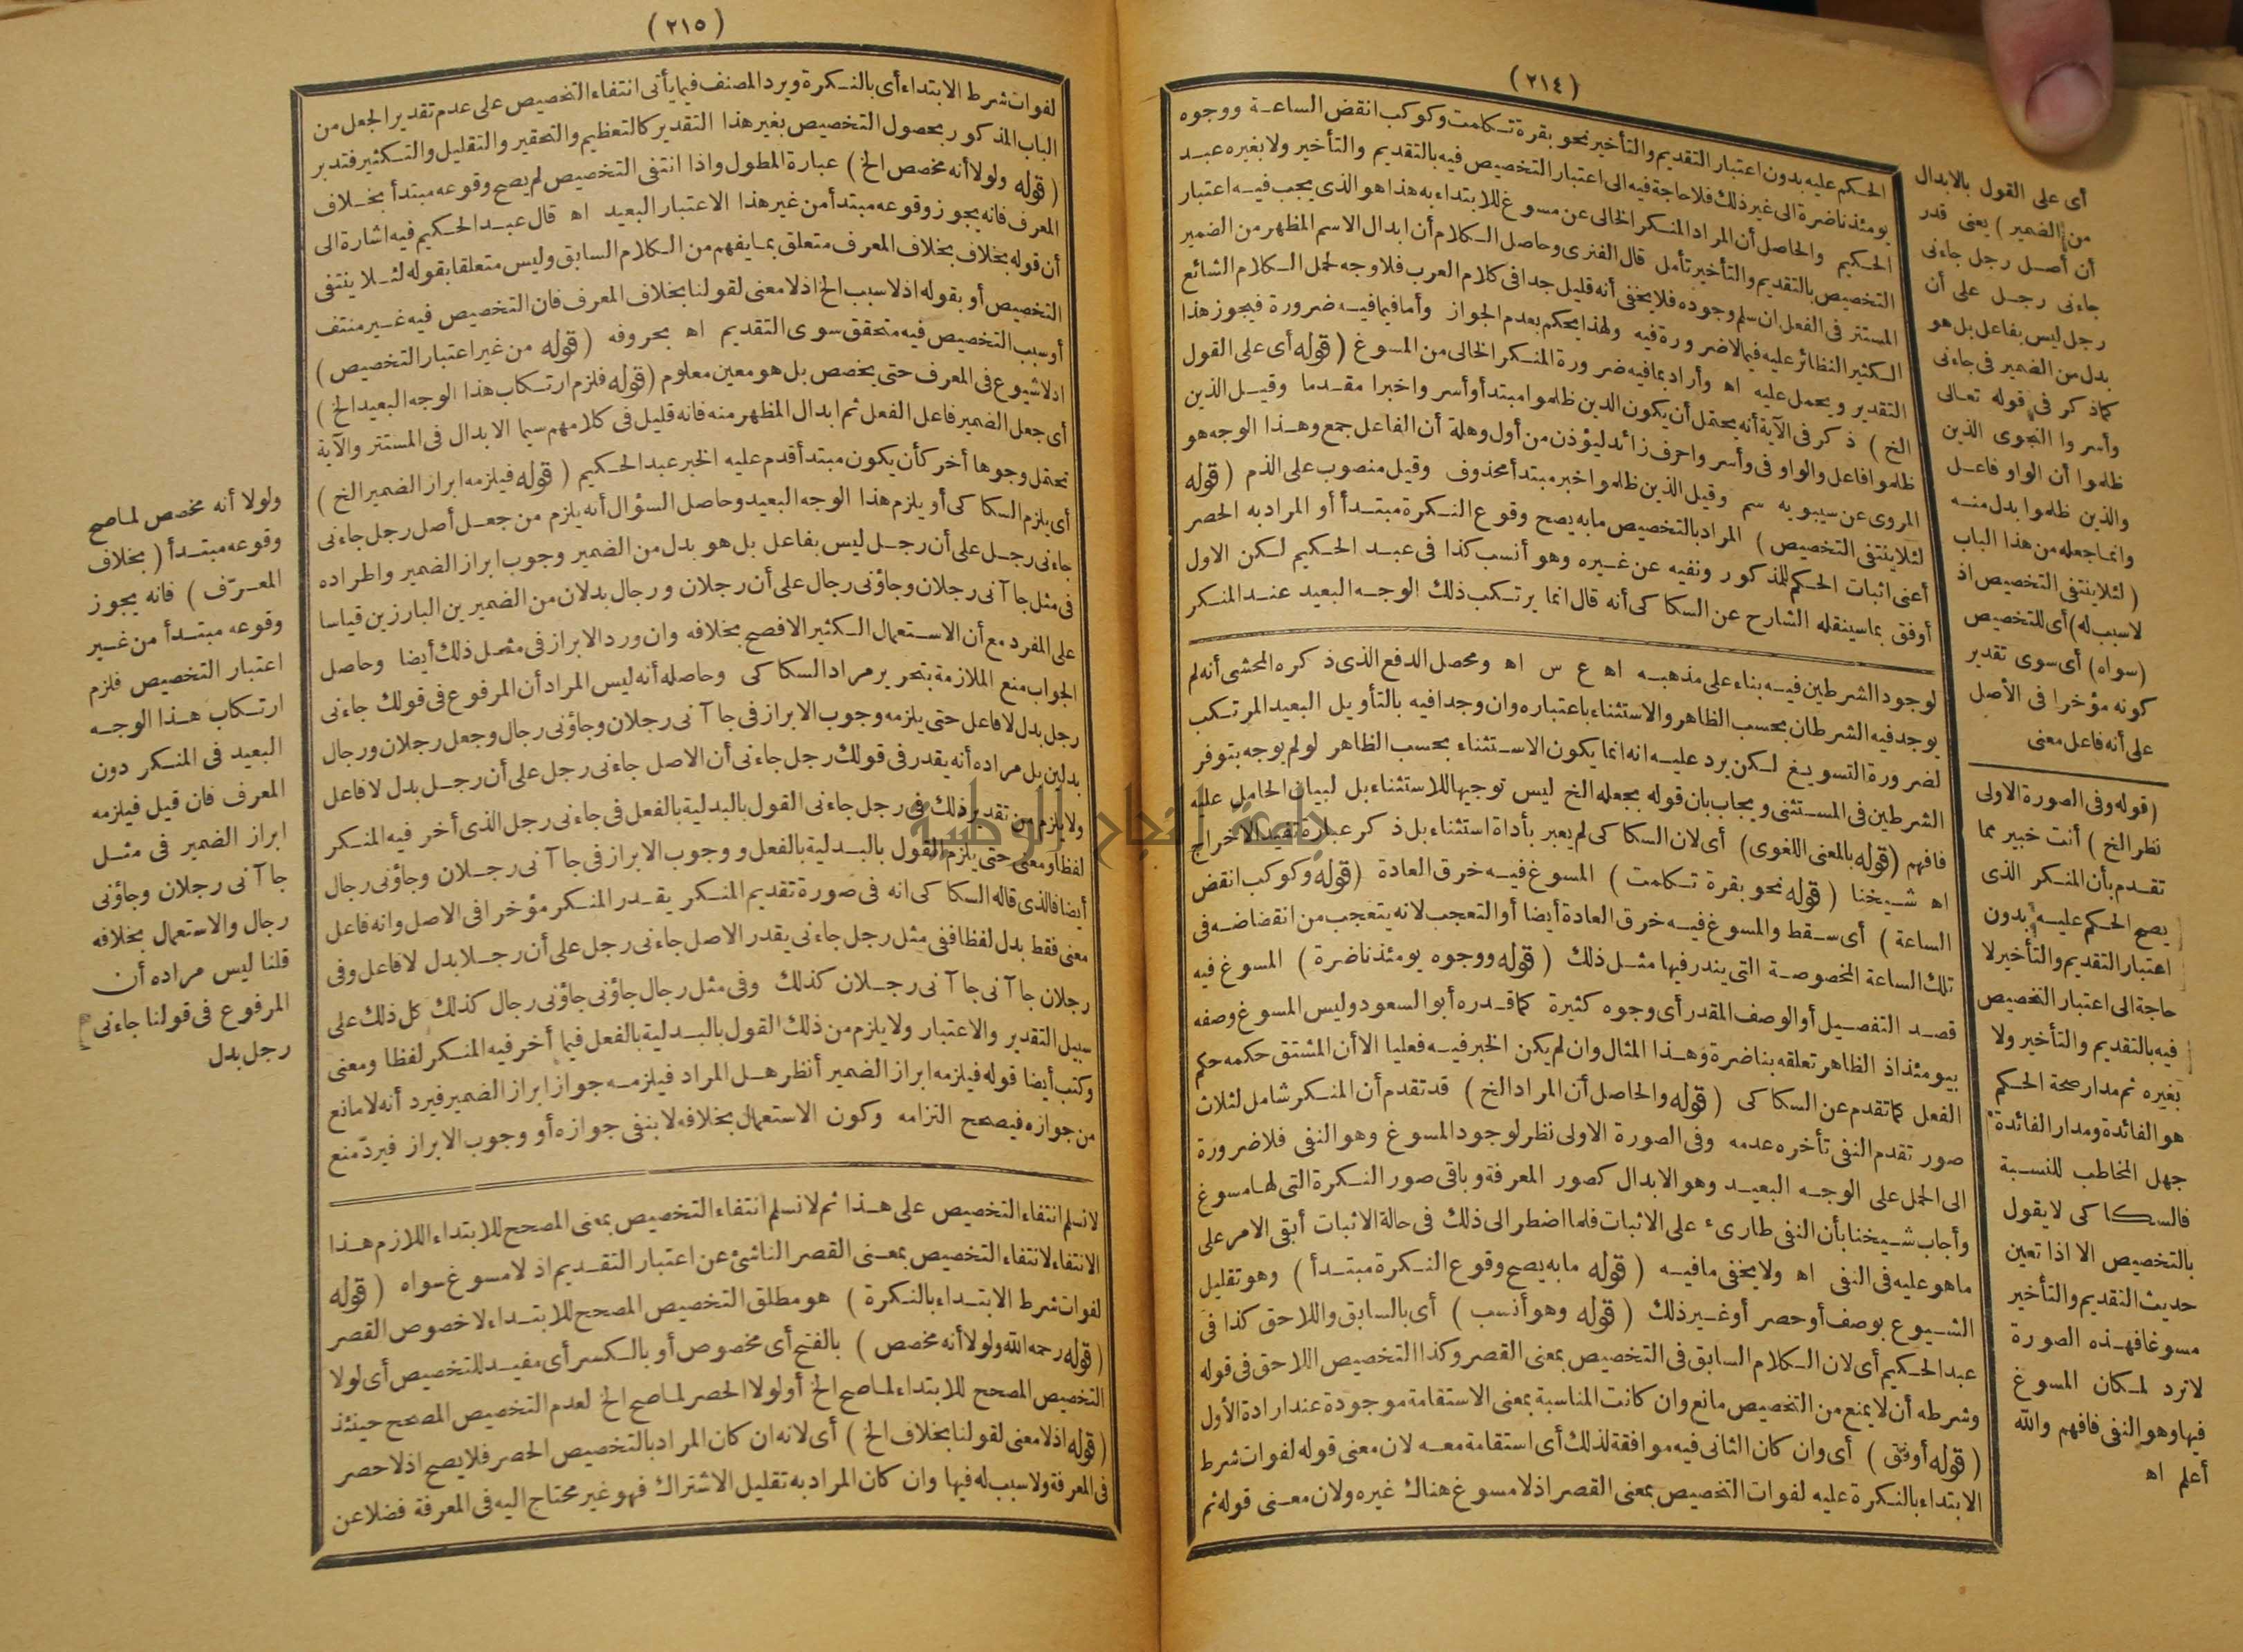 (٢١٤)
الحكم عليه بدون اعتبار التقديم والتأخير نحو بقرة تكلمت وكوكب انقض الساعة ووجوه
يومئذ ناضرة الى غير ذلك فلا حاجة فيه الى اعتبار التخصيص فيه بالتقديم والتأخير ولا بغيره عبد
الحكيم والحاصل أن المراد المنكر الخالى عن مسوغ للابتداء به هذا هو الذى يجب فيه اعتبار
التخصيص بالتقديم والتأخير تأمل قال الفنرى وحاصل الكلام أن ابدال الاسم المظهر من الضمير
المستتر فى الفعل ان سلم وجوده فلا يخفى أنه قليل جدا فى كلام العرب فلا وجه لحمل الكلام الشائع
الكثير النظائر عليه فيما لا ضرورة فيه ولهذا يحكم بعدم الجواز وأما فيما فيه ضرورة فيجوز هذا
التقدير ويحمل عليه اه وأراد بما فيه ضرورة المنكر الخالى من المسوغ (قوله أى على القول
الخ) ذكر فى الآية أنه يحتمل أن يكون الذين ظلموا مبتدأ وأسروا خبرا مقدما وقيل الذين
ظلموا فاعل والواو فى وأسروا حرف زائد ليؤذن من أول وهلة أن الفاعل جمع وهذا الوجه هو
المروى عن سيبويه سم وقيل الذين ظلموا خبر مبتدأ محذوف وقيل منصوب على الذم (قوله
لئلا ينتفى التخصيص) المراد بالتخصيص ما به يصح وقوع النكرة مبتدأ أو المراد به الحصر
أعنى اثبات الحكم للمذكور ونفيه عن غيره وهو أنسب كذا فى عبد الحكيم لكن الاول
أوفق بما سينقله الشارح عن السكاكى أنه قال انما يرتكب ذلك الوجه البعيد عند المنكر
لوجود الشرطين فيه بناء على مذهبه اه ع س اه ومحصل الدفع الذى ذكره المحشى أنه لم
يوجد فيه الشرطان بحسب الظاهر والاستثناء باعتباره وان وجدا فيه بالتأويل البعيد المرتكب
لضرورة التسويغ لكن يرد عليه انه انما يكون الاستثناء بحسب الظاهر لو لم يوجه بتوفر
الشرطين فى المستثنى ويجاب بان قوله بجعله الخ ليس توجيها للاستثناء بل لبيان الحامل عليه
فافهم (قوله بالمعنى اللغوى) أى لان السكاكى لم يعبر بأداة استثناء بل ذكر عبارة تفيد الاخراج
اه شيخنا (قوله نحو بقرة تكلمت) المسوغ فيه خرق العادة (قوله وكوكب انقض
الساعة) أى سقط والمسوغ فيه خرق العادة أيضا أو التعجب لانه يتعجب من انقضاضه فى
تلك الساعة المخصوصة التى يندر فيها مثل ذلك (قوله ووجوه يومئذ ناضرة) المسوغ فيه
قصد التفصيل أو الوصف المقدر أى وجوه كثيرة كما قدره أبو السعود وليس المسوغ وصفه
بيومئذ اذ الظاهر تعلقه بناضرة وهذا المثال وان لم يكن الخبر فيه فعليا الا أن المشتق حكمه حكم
الفعل كما تقدم عن السكاكى (قوله والحاصل أن المراد الخ) قد تقدم أن المنكر شامل لثلاث
صور تقدم النفى تأخره عدمه وفى الصورة الاولى نظر لوجود المسوغ وهو النفى فلا ضرورة
الى الحمل على الوجه البعيد وهو الابدال كصور المعرفة وباقى صور النكرة التى لها مسوغ
وأجاب شيخنا بأن النفى طارىء على الاثبات فلما اضطر الى ذلك فى حالة الاثبات أبقى الامر على
ما هو عليه فى النفى اه ولا يخفى ما فيه (قوله ما به يصح وقوع النكرة مبتدأ) وهو تقليل
الشيوع بوصف أو حصر أو غير ذلك (قوله وهو أنسب) أى بالسابق واللاحق كذا فى
عبد الحكيم أى لان الكلام السابق فى التخصيص بمعنى القصر وكذا التخصيص اللاحق فى قوله
وشرطه أن لا يمنع من التخصيص مانع وان كانت المناسبة بمعنى الاستقامة موجودة عند ارادة الأول
(قوله أوفق) أى وان كان الثانى فيه موافقة لذلك أى استقامة معه لان معنى قوله لفوات شرط
الابتداء بالنكرة عليه لفوات التخصيص بمعنى القصر اذ لا مسوغ هناك غيره ولان معنى قوله ثم
أى على القول بالابدال
من الضمير) يعنى قدر
أن أصل رجل جاءنى
جاءنى رجل على أن
رجل ليس بفاعل بل هو
بدل من الضمير فى جاءنى
كما ذكر فى قوله تعالى
وأسروا النجوى الذين
ظلموا أن الواو فاعل
والذين ظلموا بدل منه
وانما جعله من هذا الباب
(لئلا ينتفى التخصيص اذ
لا سبب له) أى للتخصيص
(سواه) أى سوى تقدير
كونه مؤخرا فى الأصل
على أنه فاعل معنى
(قوله وفى الصورة الاولى
نظر الخ) أنت خبير مما
تقدم بأن المنكر الذى
يصح الحكم عليه بدون
اعتبار التقديم والتأخير لا
حاجة الى اعتبار التخصيص
فيه بالتقديم والتأخير ولا
بغيره ثم مدار صحة الحكم
هو الفائدة ومدار الفائدة
جهل المخاطب للنسبة
فالسكاكى لا يقول
بالتخصيص الا اذا تعين
حديث التقديم والتأخير
مسوغا فهذه الصورة
لا ترد لمكان المسوغ
فيها وهو النفى فافهم والله
أعلم اه
(٢١٥)
لفوات شرط الابتداء أى بالنكرة ويرد المصنف فيما يأتى انتفاء التخصيص على عدم تقدير الجعل من
الباب المذكور بحصول التخصيص بغير هذا التقدير كالتعظيم والتحقير والتقليل والتكثير فتدبر
(قوله ولولا أنه مخصص الخ) عبارة المطول واذا انتفى التخصيص لم يصح وقوعه مبتدأ بخلاف
المعرف فانه يجوز وقوعه مبتدأ من غير هذا الاعتبار البعيد اه قال عبد الحكيم فيه اشارة الى
أن قوله بخلاف بخلاف المعرف متعلق بما يفهم من الكلام السابق وليس متعلقا بقوله لئلا ينتفى
التخصيص أو بقوله اذ لا سبب الخ اذ لا معنى لقولنا بخلاف المعرف فان التخصيص فيه غير منتف
أو سبب التخصيص فيه متحقق سوى التقديم اه بحروفه (قوله من غير اعتبار التخصيص)
اذ لا شيوع فى المعرف حتى يخصص بل هو معين معلوم (قوله فلزم ارتكاب هذا الوجه البعيد الخ)
أى جعل الضمير فاعل الفعل ثم ابدال المظهر منه فانه قليل فى كلامهم سيما الابدال فى المستتر والآية
تحتمل وجوها أخر كأن يكون مبتدأ قدم عليه الخبر عبد الحكيم (قوله فيلزمه ابراز الضمير الخ)
أى يلزم السكاكى أو يلزم هذا الوجه البعيد وحاصل السؤال أنه يلزم من جعل أصل رجل جاءنى
جاءنى رجل على أن رجل ليس بفاعل بل هو بدل من الضمير وجوب ابراز الضمير واطراده
فى مثل جاآنى رجلان وجاؤنى رجال على أن رجلان ورجال بدلان من الضميرين البارزين قياسا
على المفرد مع أن الاستعمال الكثير الافصح بخلافه وان ورد الابراز فى مثل ذلك أيضا وحاصل
الجواب منع الملازمة بتحرير مراد السكاكى وحاصله أنه ليس المراد أن المرفوع فى قولك جاءنى
رجل بدل لا فاعل حتى يلزمه وجوب الابراز فى جاآنى رجلان وجاؤنى رجال وجعل رجلان ورجال
بدلين بل مراده أنه يقدر فى قولك رجل جاءنى أن الاصل جاءنى رجل على أن رجل بدل لا فاعل
ولا يلزم من تقدير ذلك فى رجل جاءنى القول بالبدلية بالفعل فى جاءنى رجل الذى أخر فيه المنكر
لفظا ومعنى حتى يلزم القول بالبدلية بالفعل ووجوب الابراز فى جاآنى رجلان وجاؤنى رجال
أيضا فالذى قاله السكاكى انه فى صورة تقديم المنكر يقدر المنكر مؤخرا فى الاصل وانه فاعل
معنى فقط بدل لفظا ففى مثل رجل جاءنى يقدر الاصل جاءنى رجل على أن رجلا بدل لا فاعل وفى
رجلان جاآنى جاآنى رجلان كذلك وفى مثل رجال جاؤنى جاؤنى رجال كذلك كل ذلك على
سبيل التقدير والاعتبار ولا يلزم من ذلك القول بالبدلية بالفعل فيما أخر فيه المنكر لفظا ومعنى
وكتب أيضا قوله فيلزمه ابراز الضمير أنظر هل المراد فيلزمه جواز ابراز الضمير فيرد أنه لا مانع
من جوازه فيصح التزامه وكون الاستعمال بخلافه لا ينفى جوازه أو وجوب الابراز فيرد منع
لا نسلم انتفاء التخصيص على هذا ثم لا نسلم انتفاء التخصيص بمعنى المصحح للابتداء اللازم هذا
الانتفاء لانتفاء التخصيص بمعنى القصر الناشئ عن اعتبار التقديم اذ لا مسوغ سواه (قوله
لفوات شرط الابتداء بالنكرة) هو مطلق التخصيص المصحح للابتداء لا خصوص القصر
(قوله رحمه الله ولولا أنه مخصص) بالفتح أى مخصوص أو بالكسر أى مفيد للتخصيص أى لولا
التخصيص المصحح للابتداء لما صح الخ أو لولا الحصر لما صح الخ لعدم التخصيص المصحح حينئذ
(قوله اذ لا معنى لقولنا بخلاف الخ) أى لانه ان كان المراد بالتخصيص الحصر فلا يصح اذ لا حصر
فى المعرفة ولا سبب له فيها وان كان المراد به تقليل الاشتراك فهو غير محتاج اليه فى المعرفة فضلا عن
ولولا أنه مخصص لما صح
وقوعه مبتدأ (بخلاف
المعرّف) فانه يجوز
وقوعه مبتدأ من غير
اعتبار التخصيص فلزم
ارتكاب هذا الوجه
البعيد فى المنكر دون
المعرف فان قيل فيلزمه
ابراز الضمير فى مثل
جاآنى رجلان وجاؤنى
رجال والاستعمال بخلافه
قلنا ليس مراده أن
المرفوع فى قولنا جاءنى
رجل بدل
جامعة النجاح الوطنية